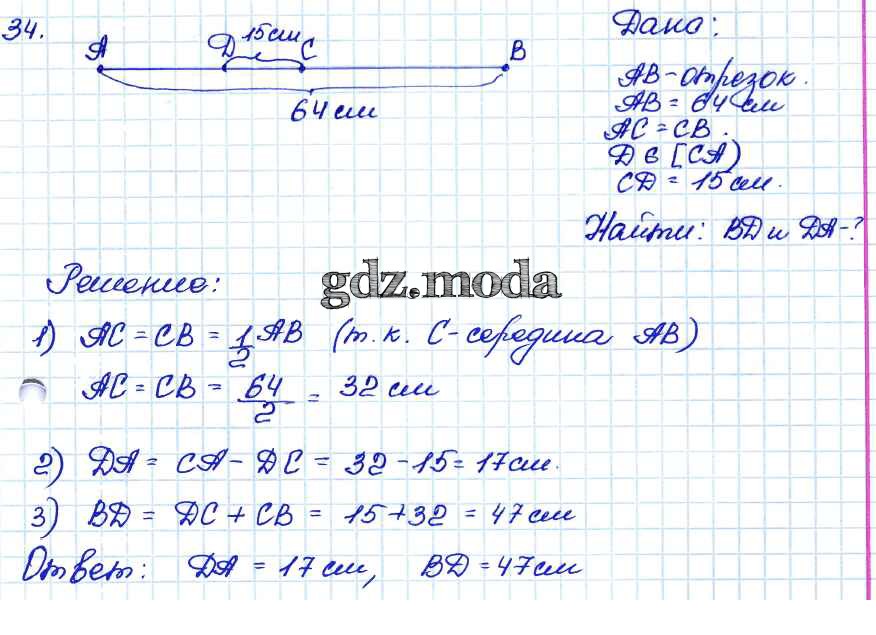 34.
A D 15 см C B
64 см
Дано:
AB - отрезок.
AB = 64 см
AC = CB.
D ∈ [CA)
CD = 15 см.
Найти: BD и DA - ?
Решение:
gdz.moda
1) AC = CB = 1/2 AB (т.к. C - середина AB)
AC = CB = 64/2 = 32 см
2) DA = CA - DC = 32 - 15 = 17 см.
3) BD = DC + CB = 15 + 32 = 47 см
Ответ: DA = 17 см, BD = 47 см